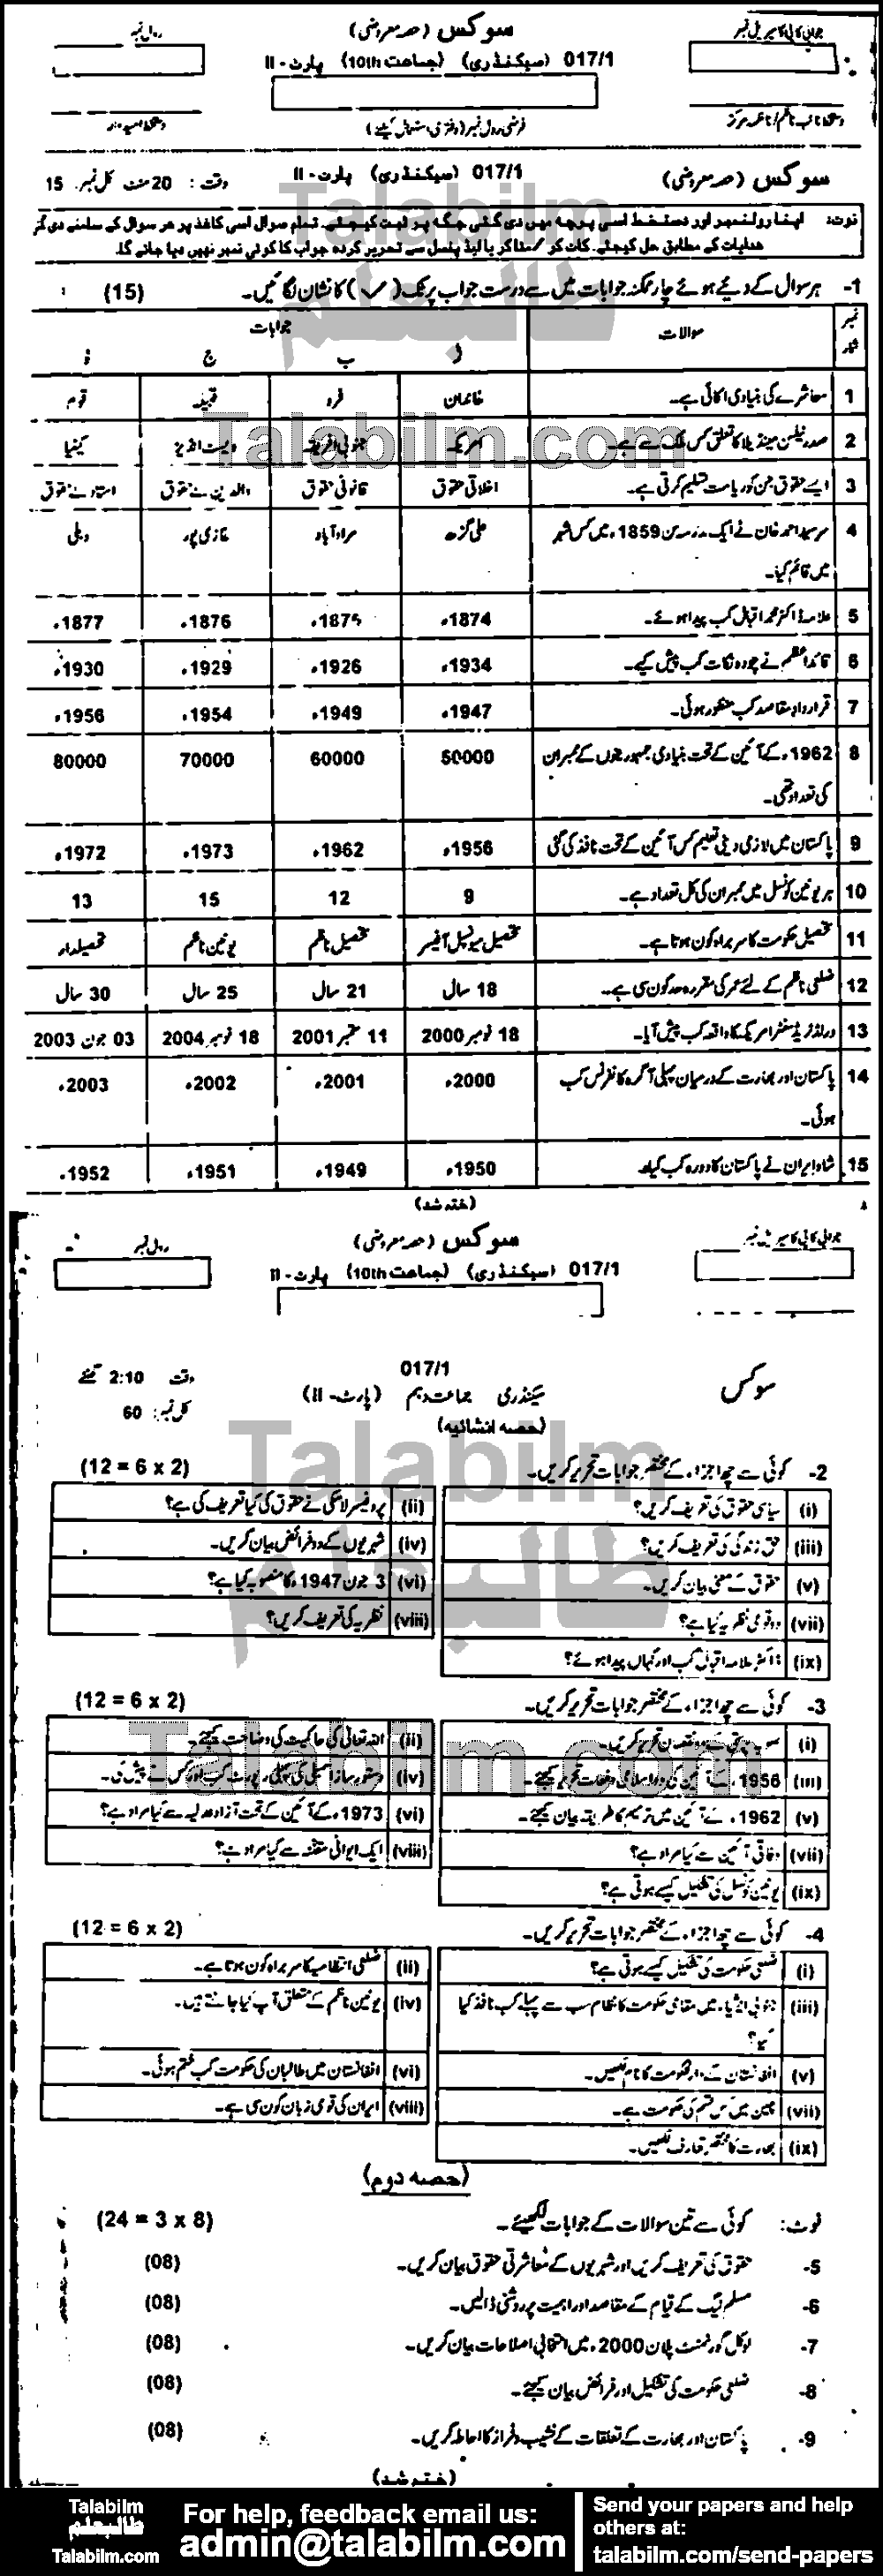 جوابی کاپی کا سیریل نمبر سوکس (حصہ معروضی) رول نمبر
017/1 (سیکنڈری) (جماعت 10th) پارٹ - II
فرضی رول نمبر (دفتری استعمال کیلئے)
سوکس (حصہ معروضی) 017/1 (سیکنڈری) پارٹ - II وقت : 20 منٹ کل نمبر: 15
نوٹ: اپنا رولنمبر اور دستخط اسی پرچہ میں دی گئی جگہ پر ثبت کیجئے۔ تمام سوال اسی کاغذ پر ہر سوال کے سامنے دی گئی
ہدایات کے مطابق حل کیجئے۔ کاٹ کر/مٹا کر یا لیڈ پنسل سے تحریر کردہ جواب کا کوئی نمبر نہیں دیا جائے گا۔
1- ہر سوال کے دیئے ہوئے چار ممکنہ جوابات میں سے درست جواب پر ٹک (✓) کا نشان لگائیں۔ (15)
نمبر شمار سوالات جوابات
ا ب ج د
1 معاشرے کی بنیادی اکائی ہے۔ خاندان فرد قبیلہ قوم
2 صدر نیلسن مینڈیلا کا تعلق کس ملک سے ہے۔ امریکہ جنوبی افریقہ ویسٹ انڈیز کینیا
3 ایسے حقوق جن کو ریاست تسلیم کرتی ہے۔ اخلاقی حقوق قانونی حقوق والدین کے حقوق استاد کے حقوق
4 سرسید احمد خان نے ایک مدرسہ سن 1859ء میں کس شہر علی گڑھ مراد آباد غازی پور دہلی
میں قائم کیا۔
5 علامہ ڈاکٹر محمد اقبال کب پیدا ہوئے۔ 1874ء 1875ء 1876ء 1877ء
6 قائداعظم نے چودہ نکات کب پیش کیے۔ 1934ء 1926ء 1929ء 1930ء
7 قرارداد مقاصد کب منظور ہوئی۔ 1947ء 1949ء 1954ء 1956ء
8 1962ء کے آئین کے تحت بنیادی جمہوریتوں کے ممبران 50000 60000 70000 80000
کی تعداد تھی۔
9 پاکستان میں لازمی دینی تعلیم کس آئین کے تحت نافذ کی گئی 1956ء 1962ء 1973ء 1972ء
10 ہر یونین کونسل میں ممبران کی کل تعداد ہے۔ 9 12 15 13
11 تحصیل حکومت کا سربراہ کون ہوتا ہے۔ تحصیل میونسپل آفیسر تحصیل ناظم یونین ناظم تحصیلدار
12 ضلعی ناظم کے لئے عمر کی مقررہ حد کون سی ہے۔ 18 سال 21 سال 25 سال 30 سال
13 ورلڈ ٹریڈ سنٹر امریکہ کا واقعہ کب پیش آیا۔ 18 نومبر 2000 11 ستمبر 2001 18 نومبر 2004 03 جون 2003
14 پاکستان اور بھارت کے درمیان پہلی آگرہ کانفرنس کب 2000ء 2001ء 2002ء 2003ء
ہوئی۔
15 شاہ ایران نے پاکستان کا دورہ کب کیا۔ 1950ء 1949ء 1951ء 1952ء
(ختم شد)
جوابی کاپی کا سیریل نمبر سوکس (حصہ معروضی) رول نمبر
017/1 (سیکنڈری) (جماعت 10th) پارٹ - II
017/1
سوکس سیکنڈری جماعت دہم (پارٹ - II) وقت 2:10 گھنٹے
(حصہ انشائیہ) کل نمبر: 60
2- کوئی سے چھ اجزاء کے مختصر جوابات تحریر کریں۔ (12 = 6 x 2)
(i) سیاسی حقوق کی تعریف کریں؟ (ii) پروفیسر لاسکی نے حقوق کی کیا تعریف کی ہے؟
(iii) حق زندگی کی تعریف کریں؟ (iv) شہریوں کے دو فرائض بیان کریں۔
(v) حقوق کے معنی بیان کریں۔ (vi) 3 جون 1947ء کا منصوبہ کیا ہے؟
(vii) دو قومی نظریہ کیا ہے؟ (viii) نظریہ کی تعریف کریں؟
(ix) ڈاکٹر علامہ اقبال کب اور کہاں پیدا ہوئے؟
3- کوئی سے چھ اجزاء کے مختصر جوابات تحریر کریں۔ (12 = 6 x 2)
(i) صوبہ پرستی کے دو نقصان تحریر کریں۔ (ii) اللہ تعالیٰ کی حاکمیت کی وضاحت کیجئے۔
(iii) 1956ء کے آئین کی دو اسلامی دفعات تحریر کیجئے۔ (iv) دستور ساز اسمبلی کی پہلی رپورٹ کب اور کس نے پیش کی۔
(v) 1962ء کے آئین میں ترمیم کا طریقہ بیان کیجئے۔ (vi) 1973ء کے آئین کے تحت آزاد عدلیہ سے کیا مراد ہے؟
(vii) وفاقی آئین سے کیا مراد ہے؟ (viii) ایک ایوانی مقننہ سے کیا مراد ہے؟
(ix) یونین کونسل کی تشکیل کیسے ہوتی ہے؟
4- کوئی سے چھ اجزاء کے مختصر جوابات تحریر کریں۔ (12 = 6 x 2)
(i) ضلعی حکومت کی تشکیل کیسے ہوتی ہے؟ (ii) ضلعی انتظامیہ کا سربراہ کون ہوتا ہے۔
(iii) جنوبی ایشیاء میں مقامی حکومت کا نظام سب سے پہلے کب نافذ کیا (iv) یونین ناظم کے متعلق آپ کیا جانتے ہیں۔
گیا؟
(v) افغانستان کے دارالحکومت کا نام لکھیں۔ (vi) افغانستان میں طالبان کی حکومت کب ختم ہوئی۔
(vii) چین میں کس قسم کی حکومت ہے۔ (viii) ایران کی قومی زبان کون سی ہے۔
(ix) بھارت کا مختصر تعارف لکھیں۔
(حصہ دوم)
نوٹ: کوئی سے تین سوالات کے جوابات لکھیئے۔ (24 = 3 x 8)
5- حقوق کی تعریف کریں اور شہریوں کے معاشرتی حقوق بیان کریں۔ (08)
6- مسلم لیگ کے قیام کے مقاصد اور اہمیت پر روشنی ڈالیں۔ (08)
7- لوکل گورنمنٹ پلان 2000ء میں انتخابی اصلاحات بیان کریں۔ (08)
8- ضلعی حکومت کی تشکیل اور فرائض بیان کیجئے۔ (08)
9- پاکستان اور بھارت کے تعلقات کے نشیب و فراز کا احاطہ کریں۔ (08)
(ختم شد)
Talabilm
طالبعلم
Talabilm.com
For help, feedback email us:
admin@talabilm.com
Send your papers and help
others at:
talabilm.com/send-papers